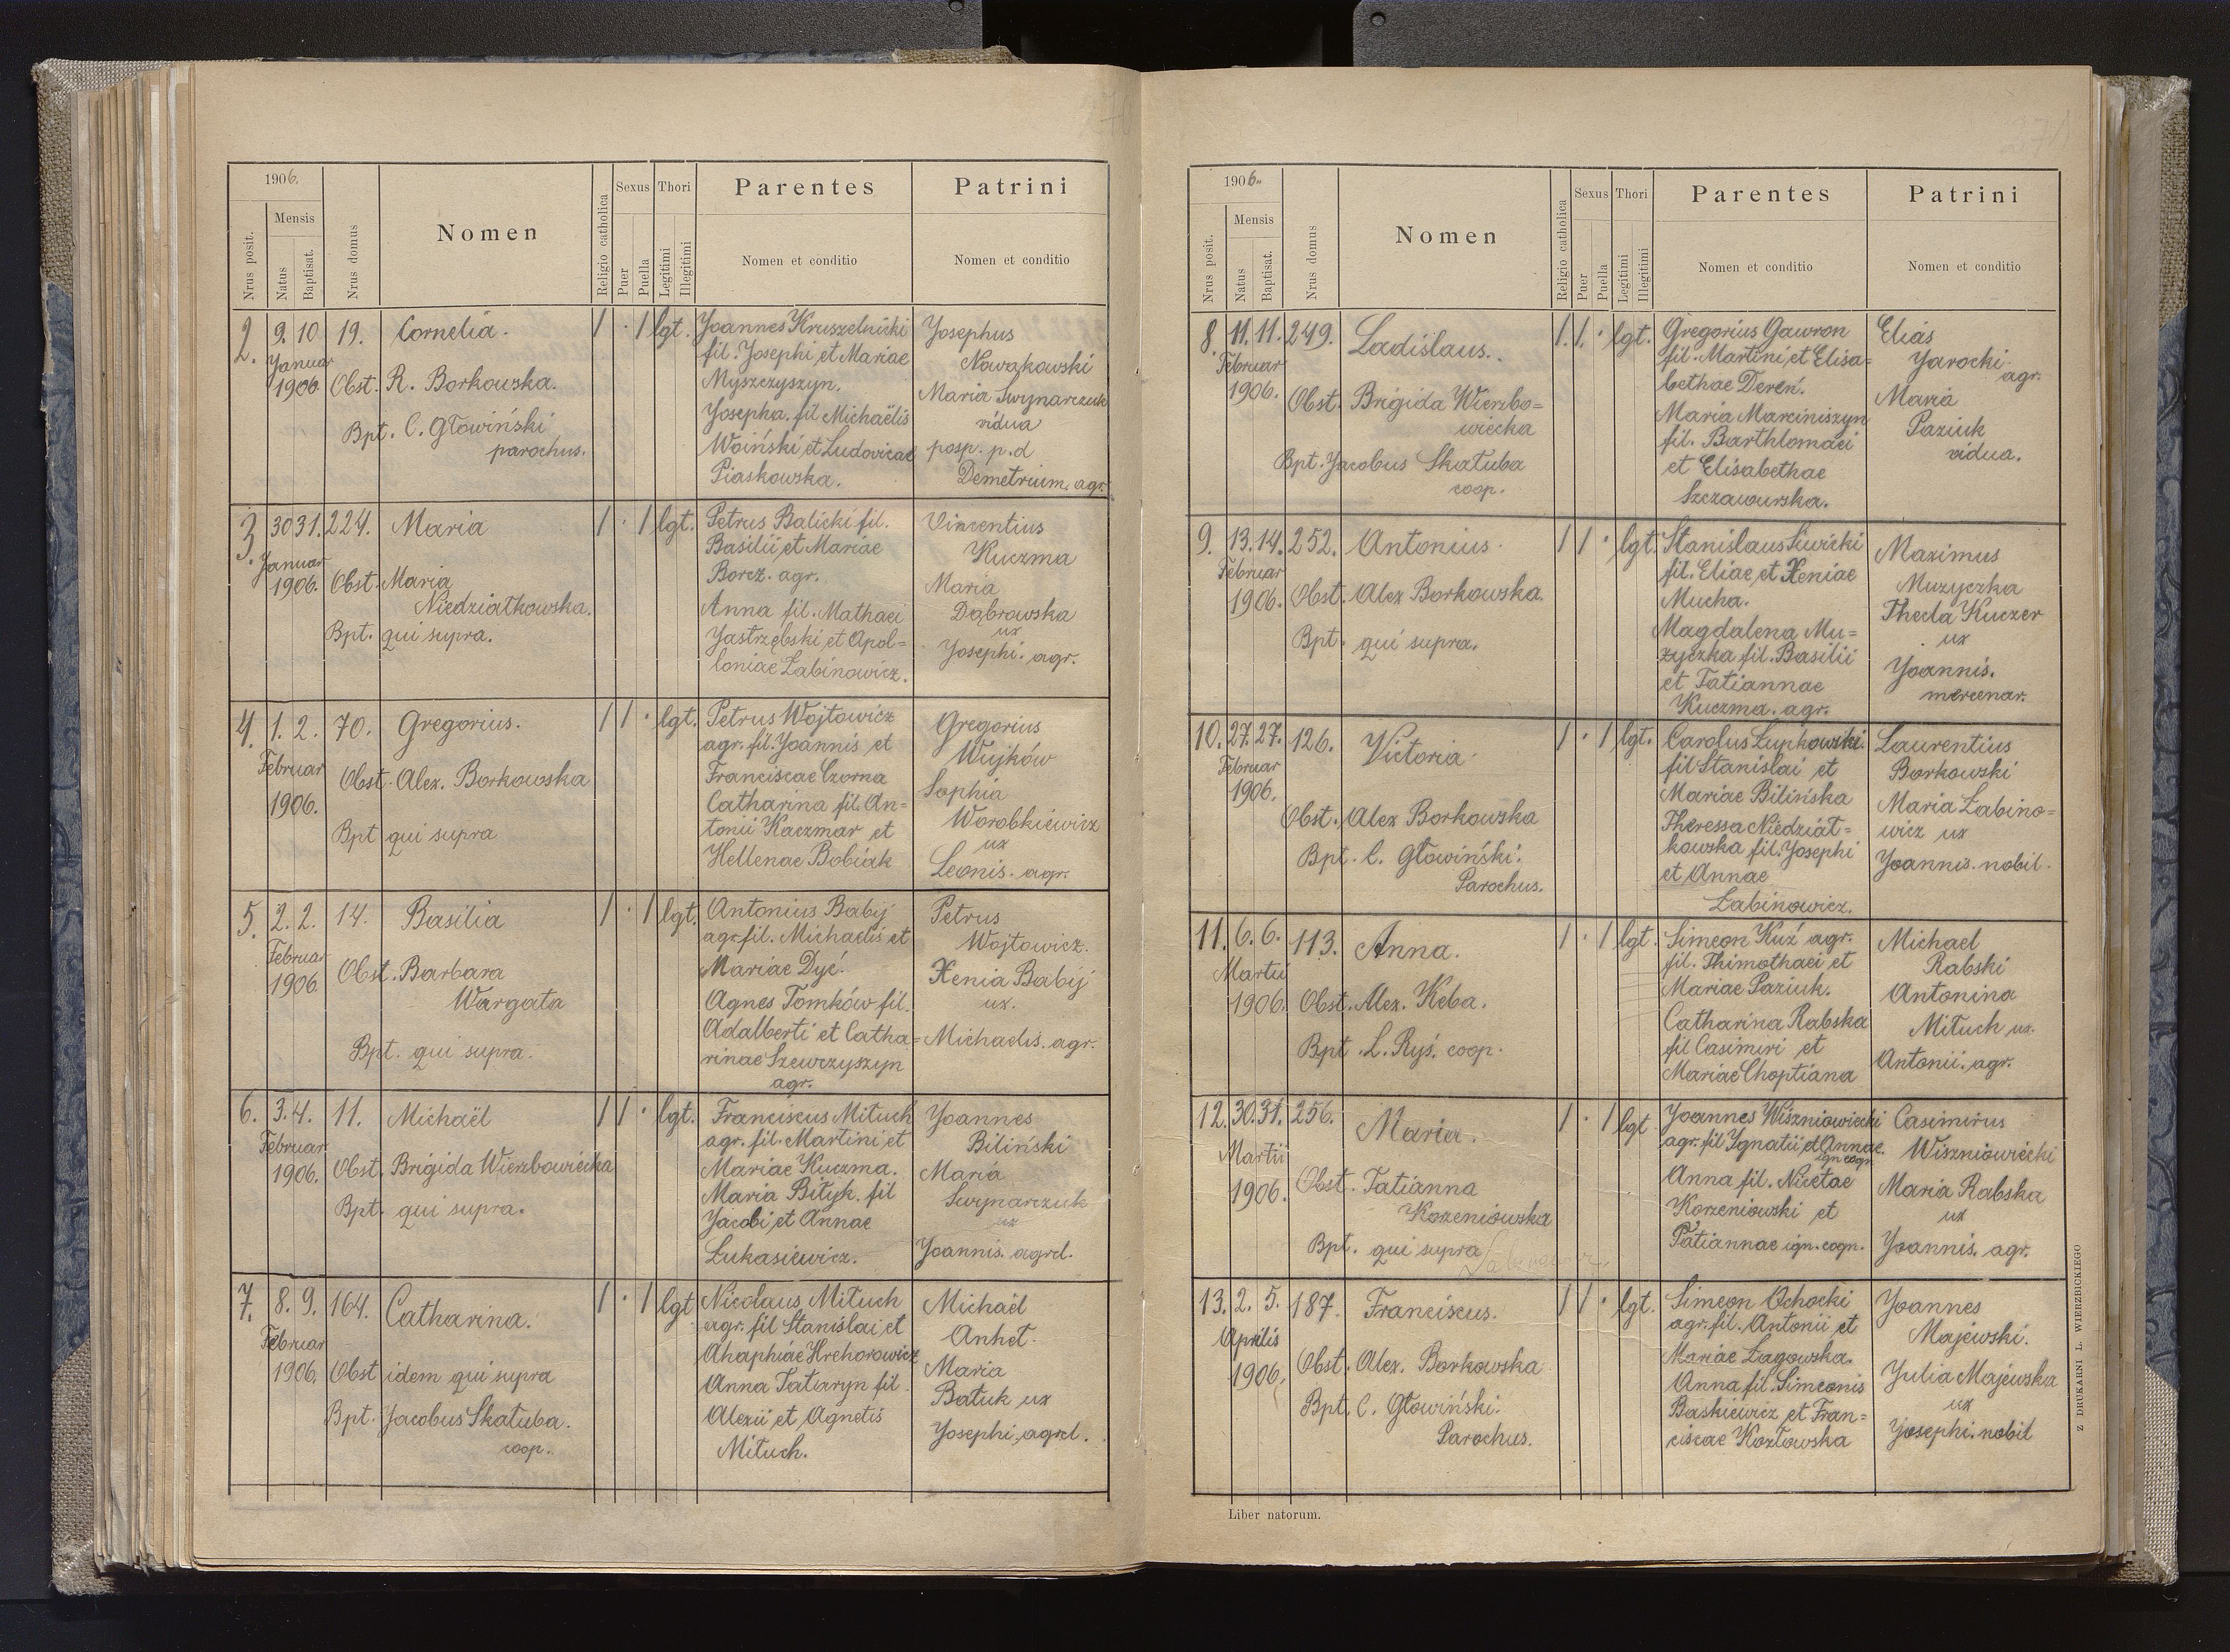 1906.
Nrus posit.
Mensis
Natus
Baptisat.
Nrus domus
Nomen
Religio catholica
Sexus
Puer
Puella
Thori
Legitimi
Illegitimi
Parentes
Nomen et conditio
Patrini
Nomen et conditio
2. 9. 10 19. Cornelia. 1 · 1 lgt.
Januar
1906 Obst. R. Borkowska.
Bpt. C. Głowiński
parochus.
Joannes Kruszelnicki
fil. Josephi et Mariae
Myszczyszyn.
Josepha. fil Michaëlis
Woiński et Ludovicae
Piaskowska.
Josephus
Nowakowski
Maria Swynarczuk
vidua
posp. p.d
Demetrium, agr.
3. 30 31. 224. Maria 1 · 1 lgt.
Januar
1906. Obst. Maria
Niedziałkowska.
Bpt. qui supra.
Petrus Balicki fil.
Basilii et Mariae
Borcz. agr.
Anna fil. Mathaei
Jastrzębski et Apol=
loniae Łabinowicz.
Vincentius
Kuczma
Maria
Dąbrowska
ux
Josephi. agr.
4. 1. 2. 70. Gregorius. 1 1 · lgt.
Februar
1906.
Obst. Alex. Borkowska
Bpt qui supra
Petrus Wojtowicz
agr. fil. Joannis et
Franciscae Czorna
Catharina fil. An=
tonii Kaczmar et
Hellenae Bobiak
Gregorius
Wujków
Sophia
Worobkiewicz
ux
Leonis. agr.
5. 2. 2. 14. Basilia 1 · 1 lgt.
Februar
1906
Obst. Barbara
Wargata
Bpt. qui supra.
Antonius Babij
agr. fil. Michaelis et
Mariae Dyć.
Agnes Tomków fil.
Adalberti et Catha=
rinae Szewczyszyn
agr.
Petrus
Wojtowicz.
Xenia Babij
ux.
Michaelis. agr.
6. 3. 4. 11. Michaël 1 1 · lgt.
Februar
1906. Obst. Brigida Wierzbowiecka
Bpt. qui supra.
Franciscus Mituch
agr. fil. Martini et
Mariae Kuczma.
Maria Bityk. fil
Jacobi et Annae
Łukasiewicz.
Joannes
Biliński
Maria
Swynarczuk
ux
Joannis. agrd.
7. 8. 9. 164. Catharina. 1 · 1 lgt
Februar
1906. Obst idem qui supra
Bpt. Jacobus Skałuba.
coop.
Nicolaus Mituch
agr. fil Stanislai et
Ahaphiae Hrehorowicz
Anna Tataryn fil.
Alexii et Agnetis
Mituch.
Michaël
Anhet.
Maria
Batuk ux
Josephi, agrd.
1906.
Nrus posit.
Mensis
Natus
Baptisat.
Nrus domus
Nomen
Religio catholica
Sexus
Puer
Puella
Thori
Legitimi
Illegitimi
Parentes
Nomen et conditio
Patrini
Nomen et conditio
8. 11. 11. 249. Ladislaus. 1. 1. · lgt.
Februar
1906. Obst. Brigida Wierzbo=
wiecka
Bpt. Jacobus Skałuba
coop.
Gregorius Gawron
fil. Martini et Elisa=
bethae Dereń.
Maria Marciniszyn
fil. Barthlomaei
et Elisabethae
Szczawurska.
Elias
Jarocki
agr.
Maria
Paziuk
vidua.
9. 13. 14. 252. Antonius 1 1 · lgt.
Februar
1906. Obst. Alex Borkowska.
Bpt. qui supra.
Stanislaus Siwicki
fil. Eliae et Xeniae
Mucha.
Magdalena Mu=
zyczka fil. Basilii
et Tatiannae
Kuczma. agr.
Maximus
Muzyczka
Thecla Kuczer
ux
Joannis.
mercenar.
10. 27. 27. 126. Victoria 1 · 1 lgt.
Februar
1906.
Obst. Alex Borkowska
Bpt. C. Głowiński.
Parochus.
Carolus Łupkowski.
fil Stanislai et
Mariae Bilińska
Theressa Niedział=
kowska fil. Josephi
et Annae
Łabinowicz.
Laurentius
Borkowski
Maria Łabino=
wicz ux
Joannis. nobil.
11. 6. 6. 113. Anna. 1 · 1 lgt.
Martii
1906. Obst. Alex. Keba.
Bpt. L. Ryś. coop.
Simeon Kuź agr.
fil. Thimothaei et
Mariae Paziuk.
Catharina Rabska
fil Casimiri et
Mariae Choptiana
Michael
Rabski
Antonina
Mituch ux.
Antonii. agr.
12. 30. 31. 256. Maria. 1 · 1 lgt
Martii
1906. Obst. Tatianna
Korzeniowska
Bpt. qui supra
Joannes Wiszniowiecki
agr. fil Ignatii et Annae.
ign cogn.
Anna fil. Nicetae
Korzeniowski et
Tatiannae ign. cogn.
Casimirus
Wiszniowiecki
Maria Rabska
ux
Joannis. agr.
13. 2. 5. 187. Franciscus. 1 1 · lgt.
Aprilis
1906. Obst. Alex. Borkowska
Bpt. C. Głowiński.
Parochus.
Simeon Ochocki
agr. fil. Antonii et
Mariae Łagowska.
Anna fil. Simeonis
Baskiewicz et Fran=
ciscae Kozłowska
Joannes
Majewski.
Julia Majewska
ux
Josephi. nobil
Liber natorum.
Z DRUKARNI L. WIERZBICKIEGO